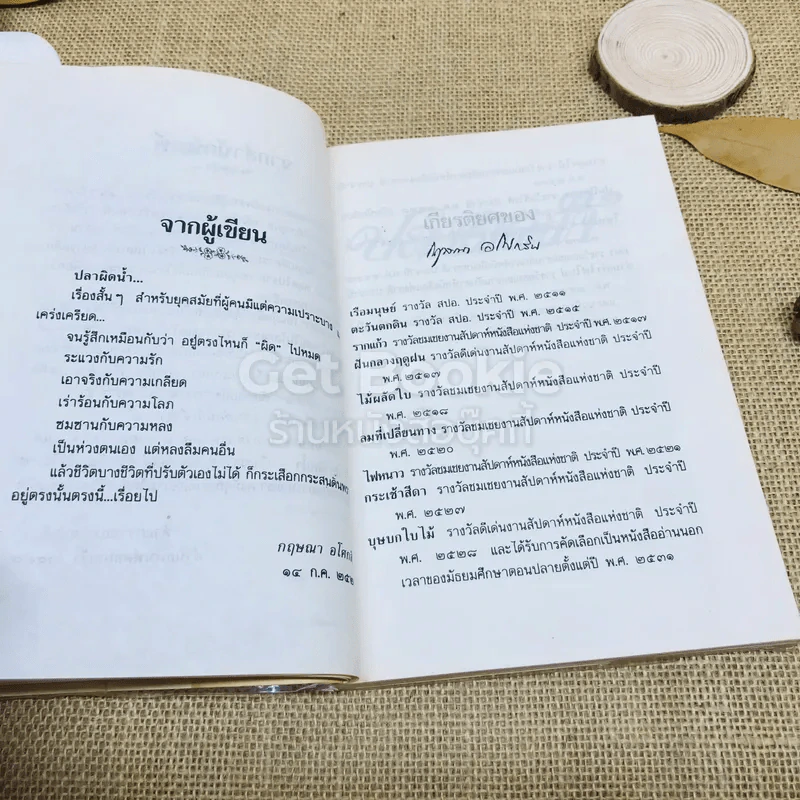 จากผู้เขียน
ปลาผิดน้ำ...
เรื่องสั้นๆ สำหรับยุคสมัยที่ผู้คนมีแต่ความเปราะบาง
เคร่งเครียด...
จนรู้สึกเหมือนกับว่า อยู่ตรงไหนก็ "ผิด" ไปหมด
ระแวงกับความรัก
เอาจริงกับความเกลียด
เร่าร้อนกับความโลภ
ซมซานกับความหลง
เป็นห่วงตนเอง แต่หลงลืมคนอื่น
แล้วชีวิตบางชีวิตที่ปรับตัวเองไม่ได้ ก็กระเสือกกระสนดิ้น
อยู่ตรงนั้นตรงนี้...เรื่อยไป
กฤษณา อโศก
๑๔ ก.ค. ๒๕
เกียรติยศของ
กฤษณา อโศกสิน
เรือมนุษย์ รางวัล สปอ. ประจำปี พ.ศ. ๒๕๑๑
ตะวันตกดิน รางวัล สปอ. ประจำปี พ.ศ. ๒๕๑๕
รากแก้ว รางวัลชมเชยงานสัปดาห์หนังสือแห่งชาติ ประจำปี พ.ศ. ๒๕๑๗
ฝันกลางฤดูฝน รางวัลดีเด่นงานสัปดาห์หนังสือแห่งชาติ ประจำปี
พ.ศ. ๒๕๑๗
ไม้ผลัดใบ รางวัลชมเชยงานสัปดาห์หนังสือแห่งชาติ ประจำปี
พ.ศ. ๒๕๑๘
ลมที่เปลี่ยนทาง รางวัลชมเชยงานสัปดาห์หนังสือแห่งชาติ ประจำปี
พ.ศ. ๒๕๒๐
ไฟหนาว รางวัลชมเชยงานสัปดาห์หนังสือแห่งชาติ ประจำปี พ.ศ. ๒๕๒๑
กระเช้าสีดา รางวัลชมเชยงานสัปดาห์หนังสือแห่งชาติ ประจำปี
พ.ศ. ๒๕๒๗
บุษบกใบไม้ รางวัลดีเด่นงานสัปดาห์หนังสือแห่งชาติ ประจำปี
พ.ศ. ๒๕๒๘ และได้รับการคัดเลือกเป็นหนังสืออ่านนอก
เวลาของมัธยมศึกษาตอนปลายตั้งแต่ปี พ.ศ. ๒๕๓๑
Get Bookie
ร้านหนังสือบุ๊คกี้